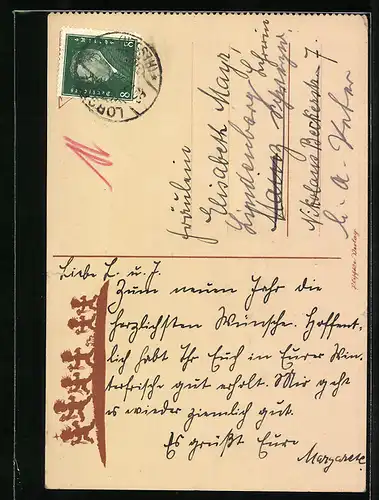 Fräulein
Elisabeth Mayr
Lindenberg
Nikolaus Beckerstr. 7.
b. A. Weber
Liebe E. u. J.
Zum neuen Jahr die
herzlichsten Wünsche. Hoffent-
lich habt Ihr Euch in Eurer Win-
terfrische gut erholt. Mir geht
es wieder ziemlich gut.
Es grüßt Eure
Margarete.